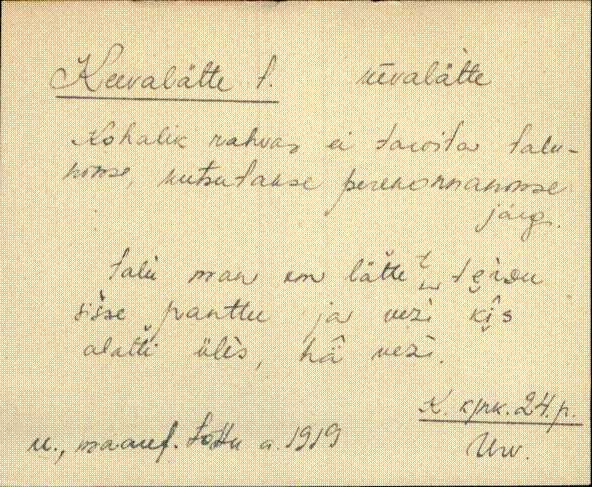 Keevalätte t. kēvalätte
Kohalik rahvas ei tarvita talu-
nime, kutsutakse perekonnanime
järg.
talu man om lätte
sisse panttu ja vezi kī̮s
alatti üles, hä vezi.
K. kjrk. 24. p.
u., maauf. tottu a. 1919
Urv.